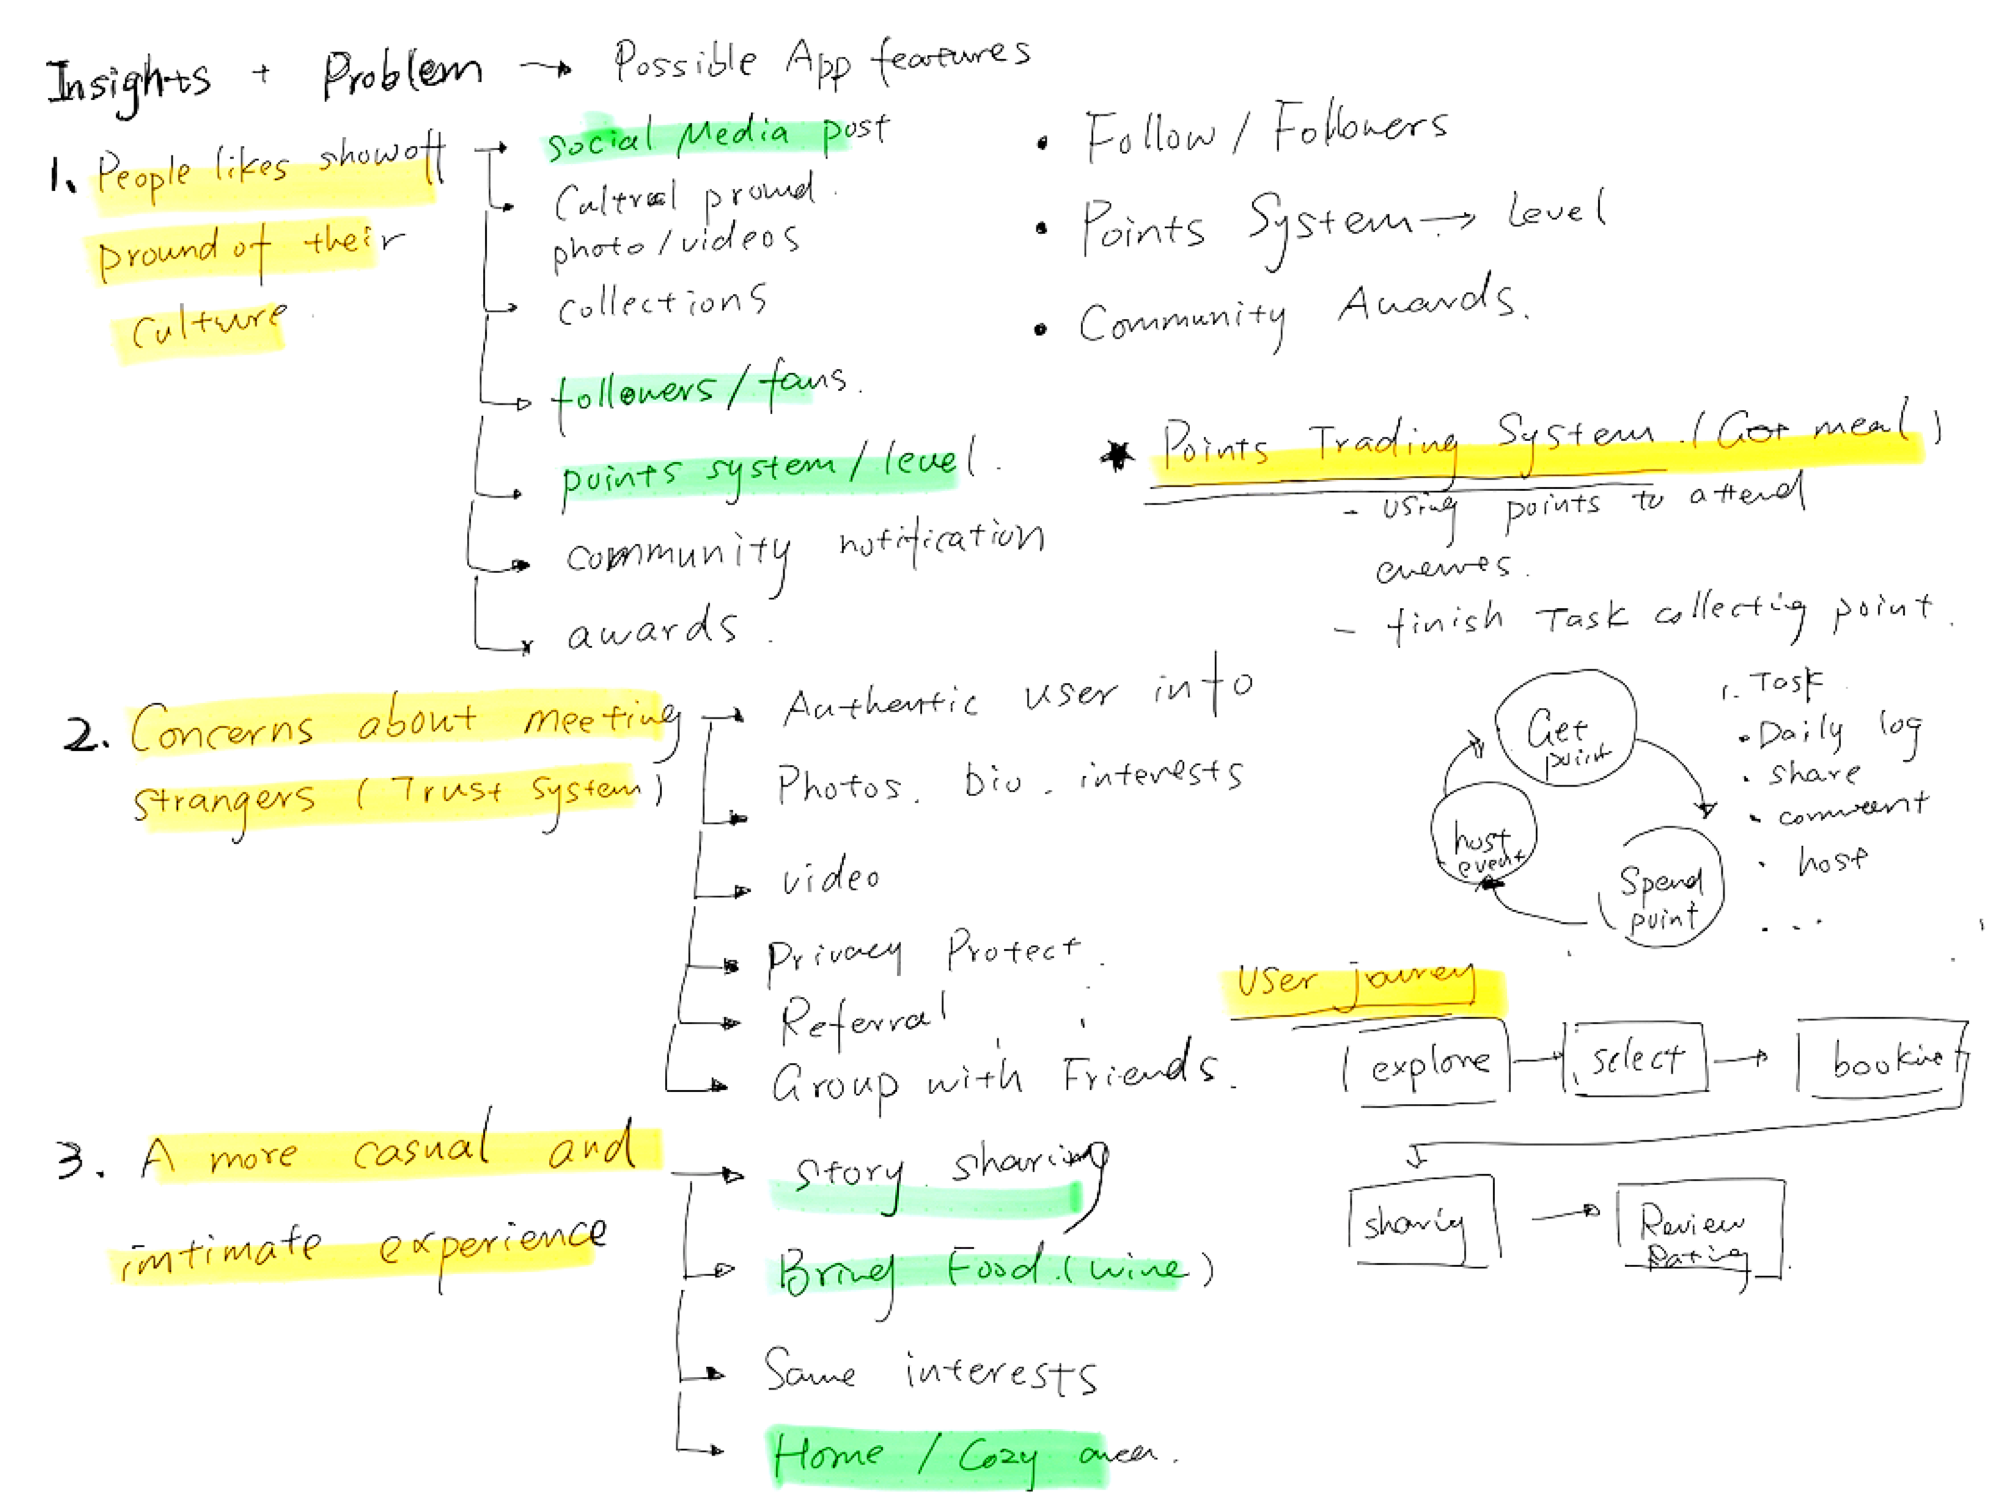 Insights + Problem → Possible App features
1. People likes showoff
pround of their
culture.
social Media post
Cultral pround.
photo/videos
collections
followers/fans.
points system/level.
community notification
awards.
• Follow / Followers
• Points System → Level
• Community Awards.
★ Points Trading System. (Got meal)
- using points to attend
- finish Task collecting point.
Get
point
Spend
point
host
event
1. Task
• Daily log
• share
• comment
• host
...
2. Concerns about meeting
strangers (Trust System)
Authentic user info
Photos. bio. interests
video
Privacy Protect.
Referral
Group with Friends.
User journey
explore → select →
sharing → Review
Rating
3. A more casual and
intimate experience
story sharing
Bring Food. (wine)
Same interests
Home / Cozy area.